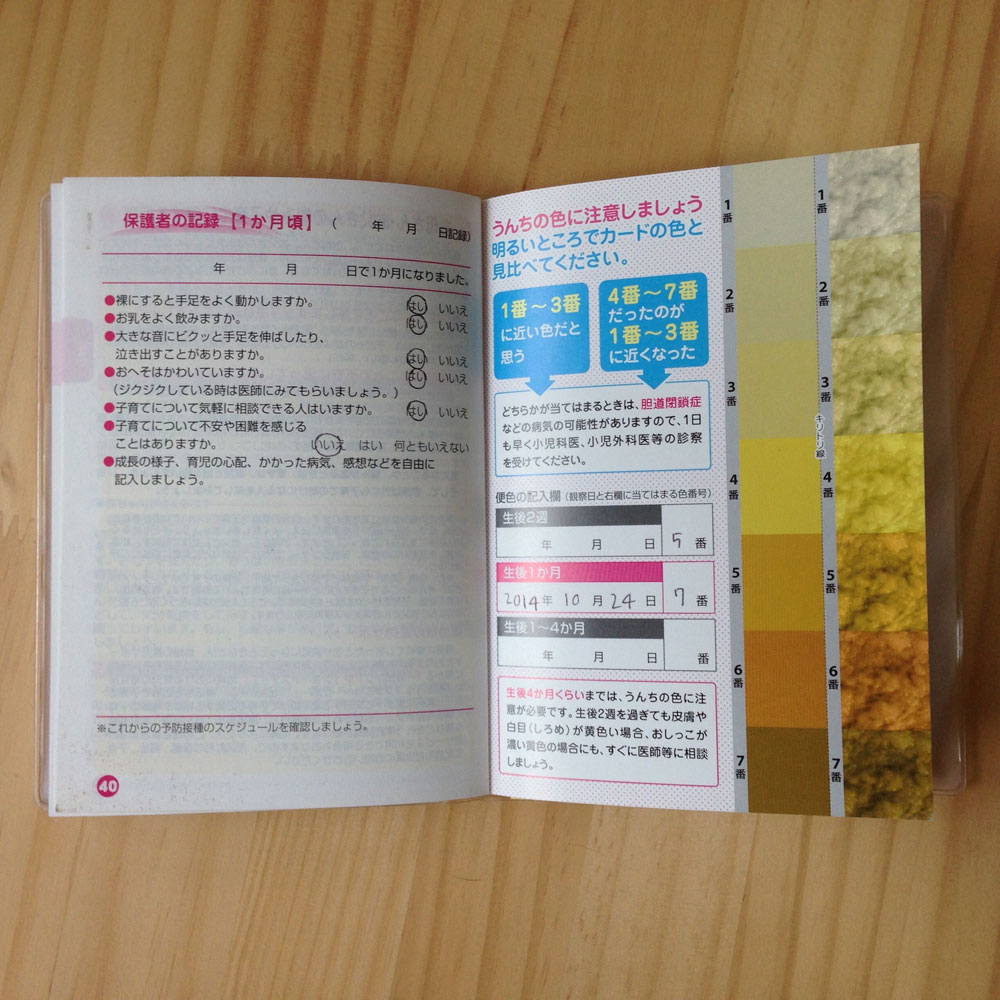 保護者の記録【1か月頃】 (　年　月　日記録)
年　月　日で1か月になりました。
●裸にすると手足をよく動かしますか。 はい いいえ
●お乳をよく飲みますか。 はい いいえ
●大きな音にビクッと手足を伸ばしたり、
泣き出すことがありますか。 はい いいえ
●おへそはかわいていますか。 はい いいえ
(ジクジクしている時は医師にみてもらいましょう。)
●子育てについて気軽に相談できる人はいますか。 はい いいえ
●子育てについて不安や困難を感じる
ことはありますか。 いいえ はい 何ともいえない
●成長の様子、育児の心配、かかった病気、感想などを自由に
記入しましょう。
※これからの予防接種のスケジュールを確認しましょう。
40
うんちの色に注意しましょう
明るいところでカードの色と
見比べてください。
1番～3番
に近い色だと
思う
4番～7番
だったのが
1番～3番
に近くなった
どちらかが当てはまるときは、胆道閉鎖症
などの病気の可能性がありますので、1日
も早く小児科医、小児外科医等の診察
を受けてください。
便色の記入欄(観察日と右欄に当てはまる色番号)
生後2週
年　月　日 5 番
生後1か月
2014年 10月 24日 7番
生後1～4か月
年　月　日　番
生後4か月くらいまでは、うんちの色に注
意が必要です。生後2週を過ぎても皮膚や
白目(しろめ)が黄色い場合、おしっこが
濃い黄色の場合にも、すぐに医師等に相談
しましょう。
1番
2番
3番
4番
5番
6番
7番
1番
2番
3番
キリトリ線
4番
5番
6番
7番